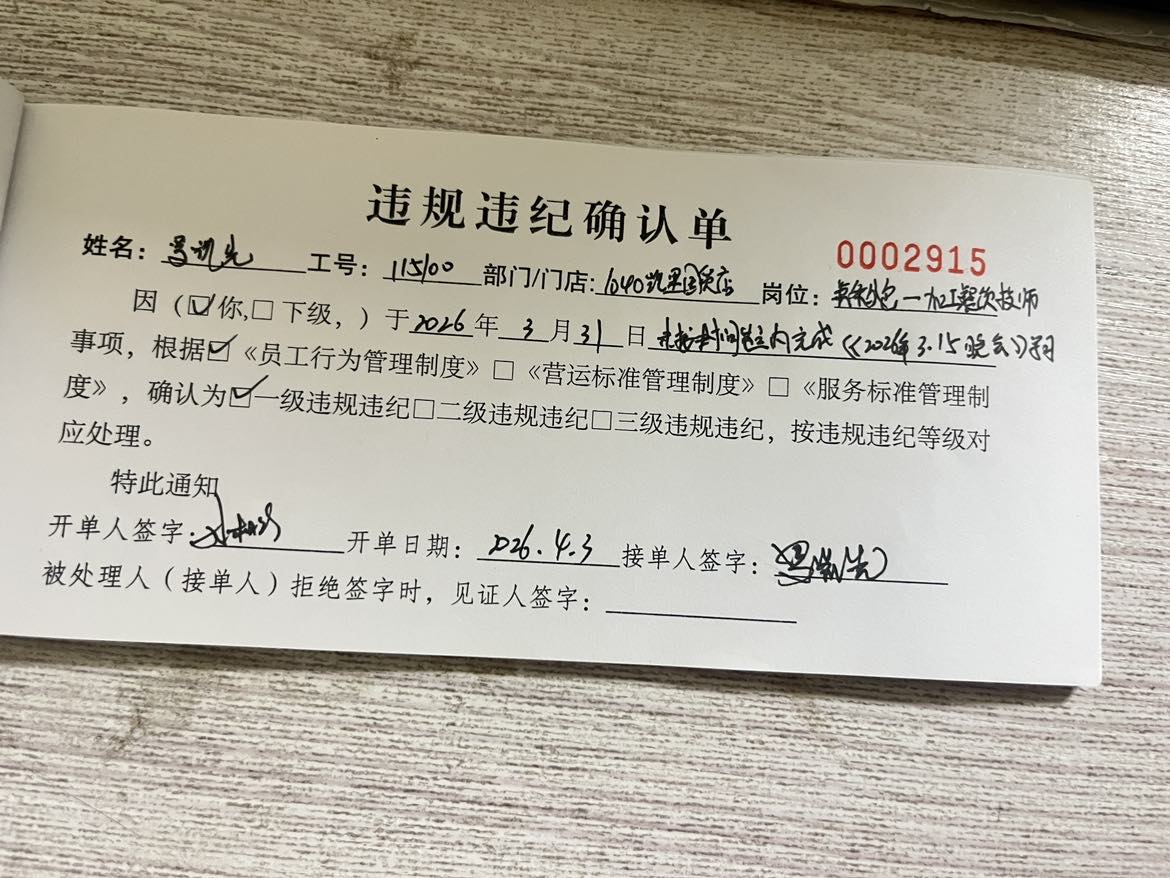 违规违纪确认单
0002915
姓名： 工号：115100 部门/门店：1040凯里国贸店 岗位：一加工餐饮技师
因（☑你，□下级，）于2026年3月31日未按时间内完成《2026年3.15晚会》
事项，根据☑《员工行为管理制度》□《营运标准管理制度》□《服务标准管理制
度》，确认为☑一级违规违纪□二级违规违纪□三级违规违纪，按违规违纪等级对
应处理。
特此通知
开单人签字： 开单日期：2026.4.3 接单人签字：
被处理人（接单人）拒绝签字时，见证人签字：